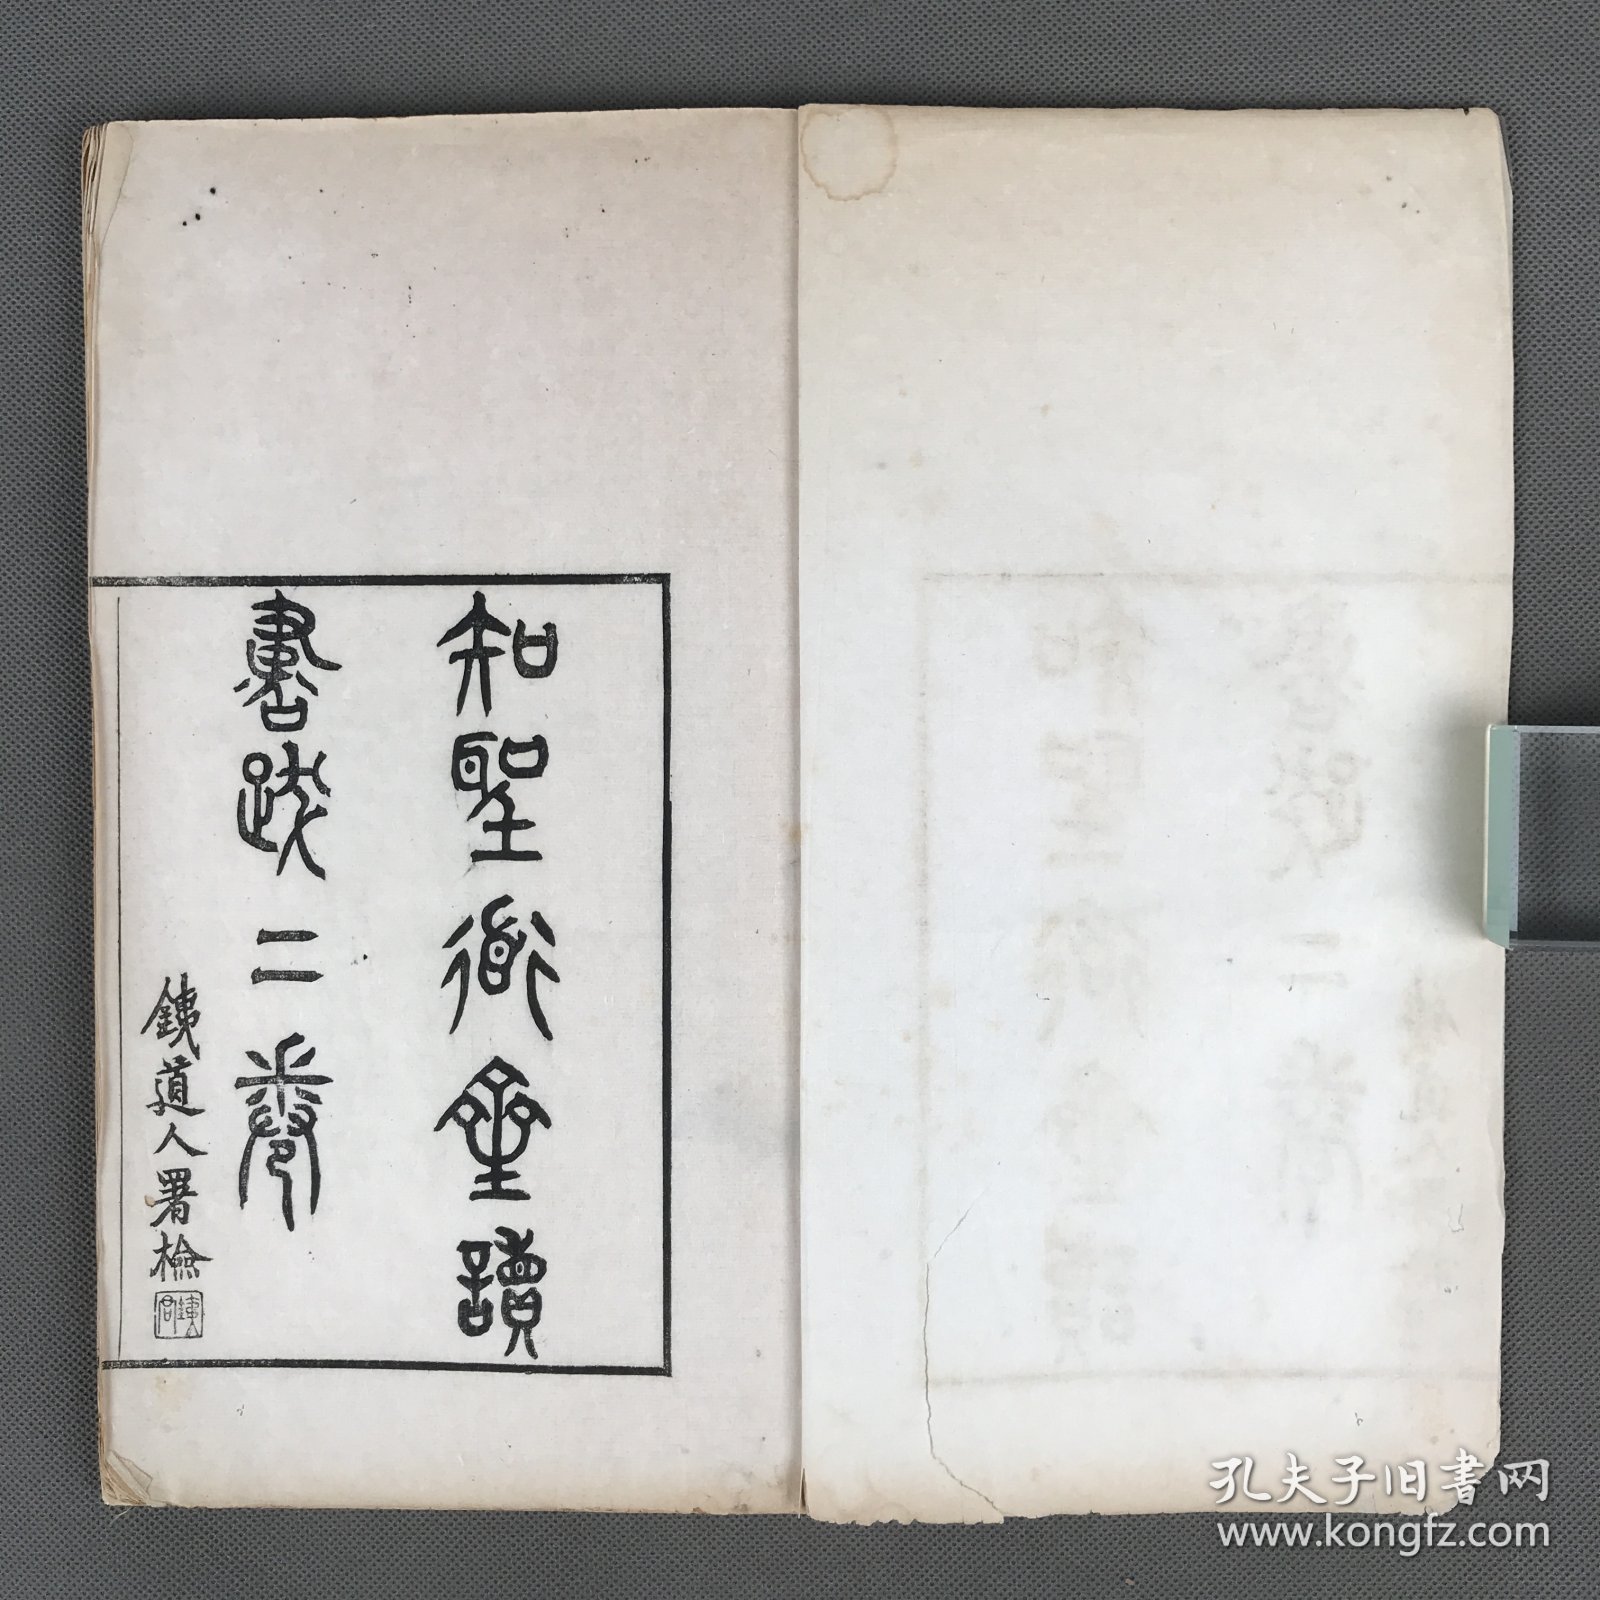 知聖衜齋讀
書跋二卷
銕道人署檢
孔夫子旧書网
www.kongfz.com